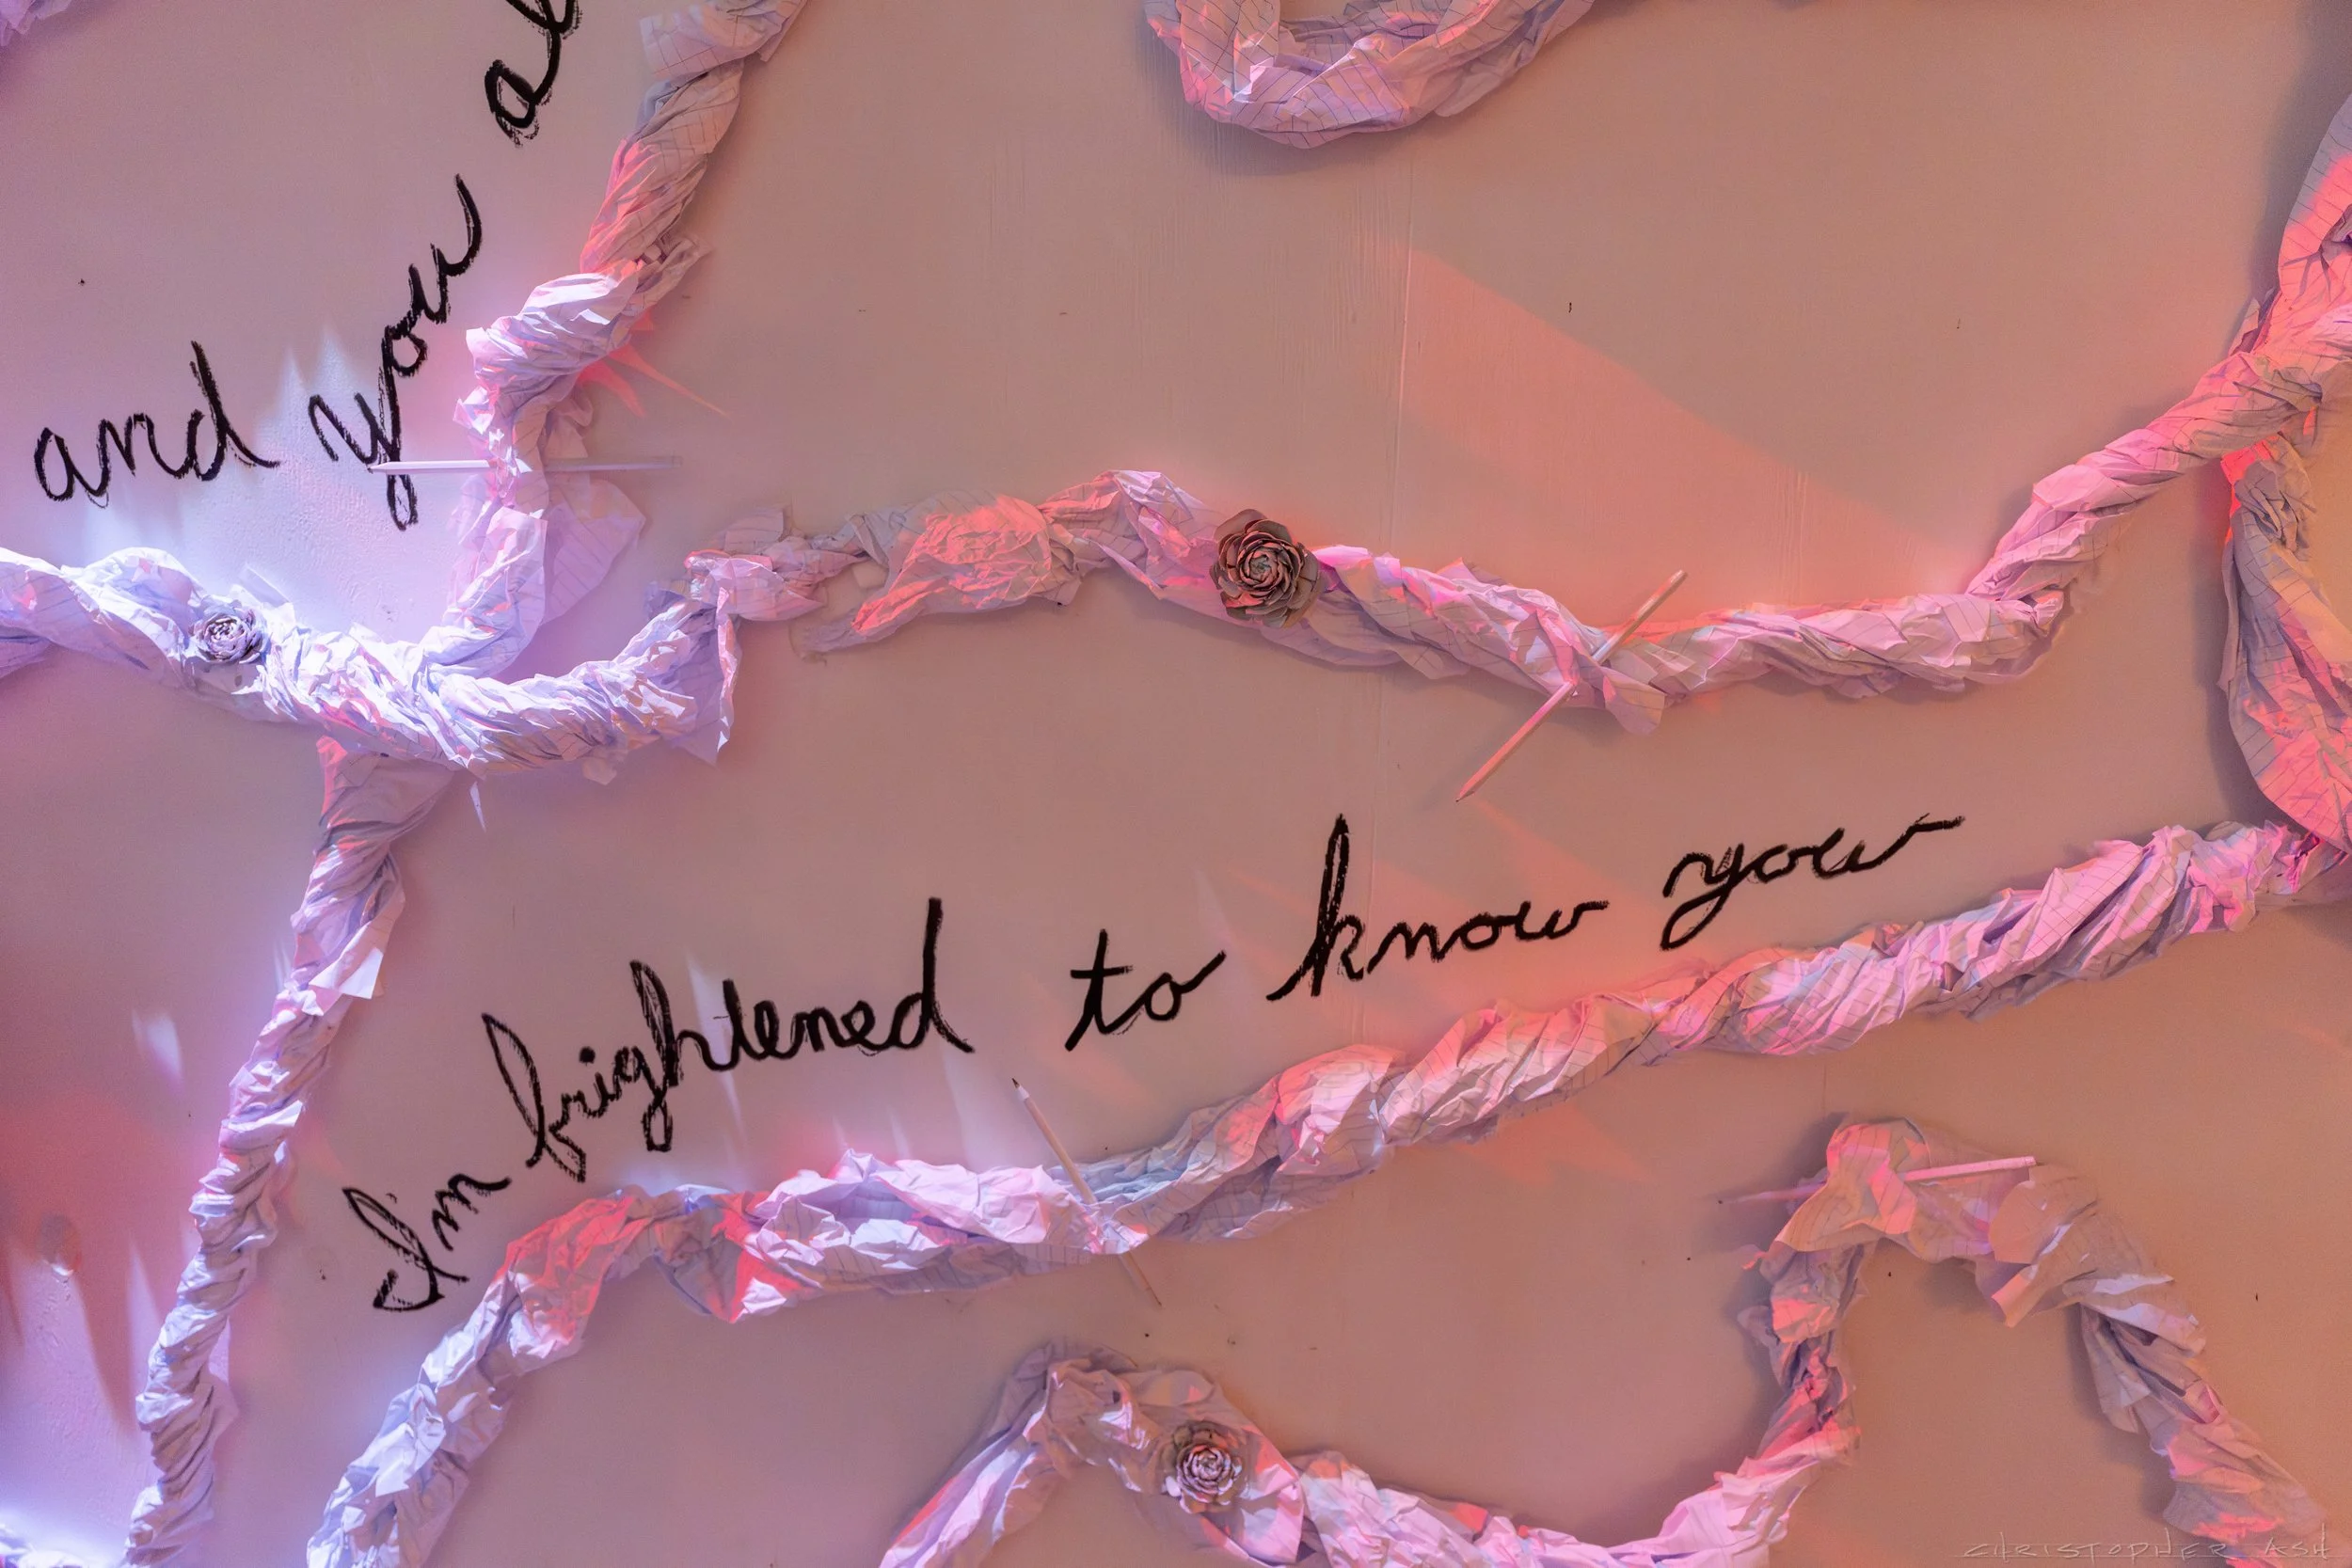 and you
I'm frightened to know you
CHRISTOPHER ASH